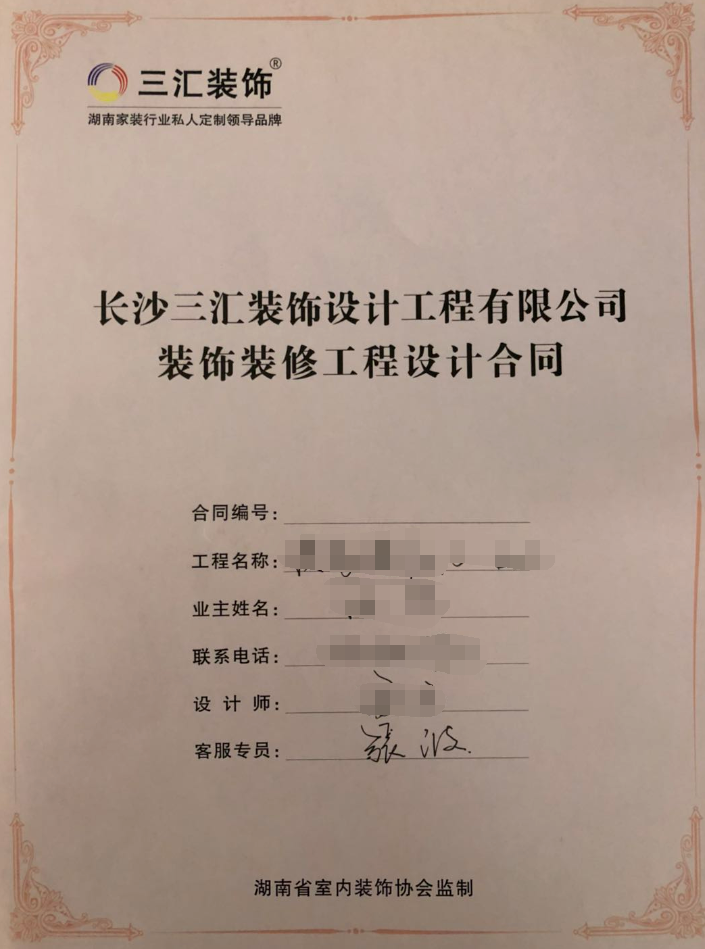 三汇装饰®
湖南家装行业私人定制领导品牌
长沙三汇装饰设计工程有限公司
装饰装修工程设计合同
合同编号：
工程名称：
业主姓名：
联系电话：
设 计 师：
客服专员：張波
湖南省室内装饰协会监制